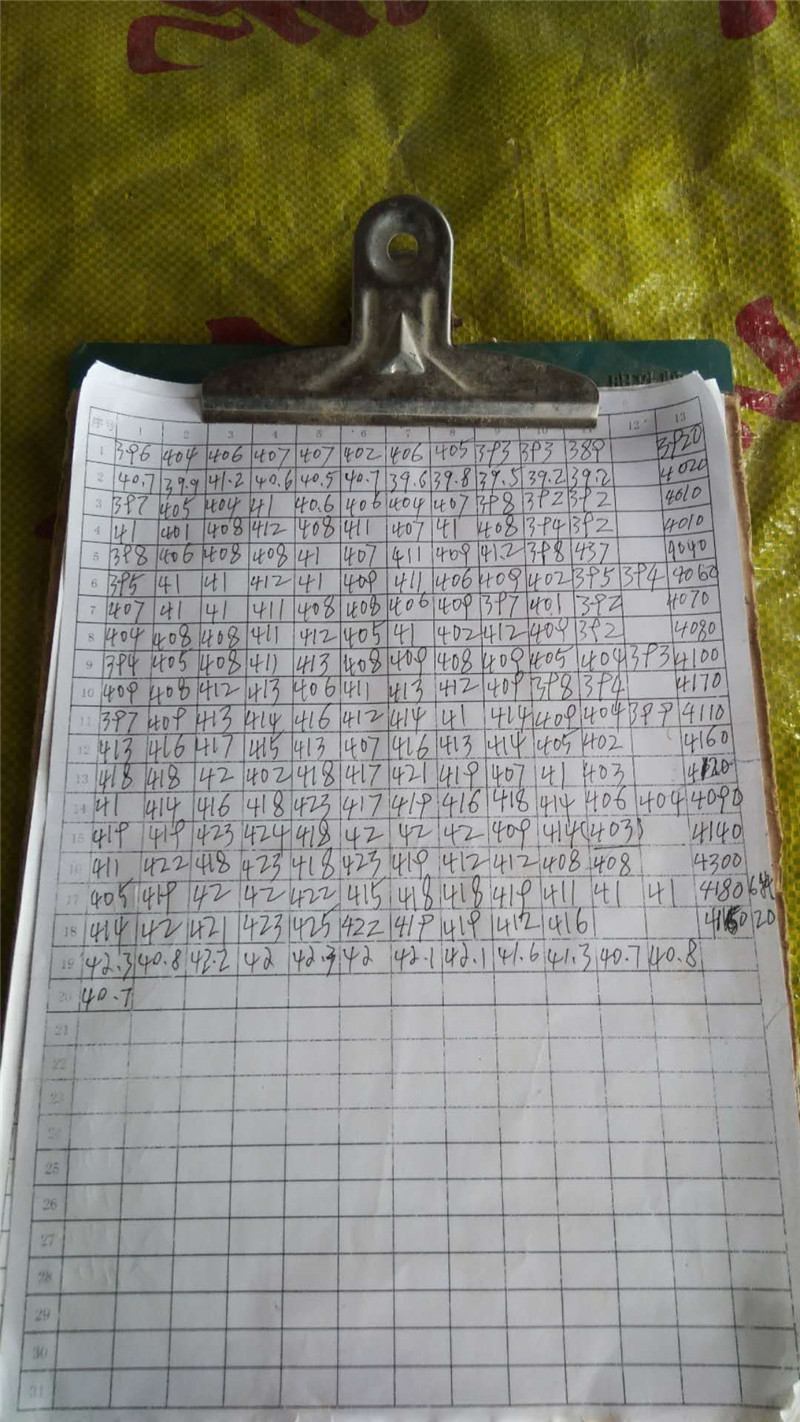 序号 1 2 3 4 5 6 7 8 9 10 11 12 13
1 396 404 406 407 407 402 406 405 393 393 389 3920
2 40.7 39.9 41.2 40.6 40.5 40.7 39.6 39.8 39.5 39.2 39.2 4020
3 397 405 404 41 40.6 406 404 407 398 392 392 4010
4 41 401 408 412 408 411 407 41 408 394 392 4010
5 398 406 408 408 41 407 411 409 412 398 437 4040
6 395 41 41 412 41 409 411 406 409 402 395 394 4060
7 407 41 41 411 408 408 406 409 397 401 392 4070
8 404 408 408 411 412 405 41 402 412 409 392 4080
9 394 405 408 411 413 408 409 408 409 405 404 393 4100
10 409 408 412 413 406 411 413 412 409 398 394 4170
11 397 409 413 414 416 412 414 41 414 409 404 399 4110
12 413 416 417 415 413 407 416 413 414 405 402 4160
13 418 418 42 402 418 417 421 419 407 41 403 4120
14 41 414 416 418 423 417 419 416 418 414 406 404 4090
15 419 419 423 424 418 42 42 42 409 414 (403) 4140
16 411 422 418 423 418 423 419 412 412 408 408 4300
17 405 419 42 42 422 415 418 418 419 411 41 41 4180
18 414 42 421 423 425 422 419 419 412 416 20
19 42.3 40.8 42.2 42 42.3 42 42.1 42.1 41.6 41.3 40.7 40.8
20 40.7
21
22
23
24
25
26
27
28
29
30
31